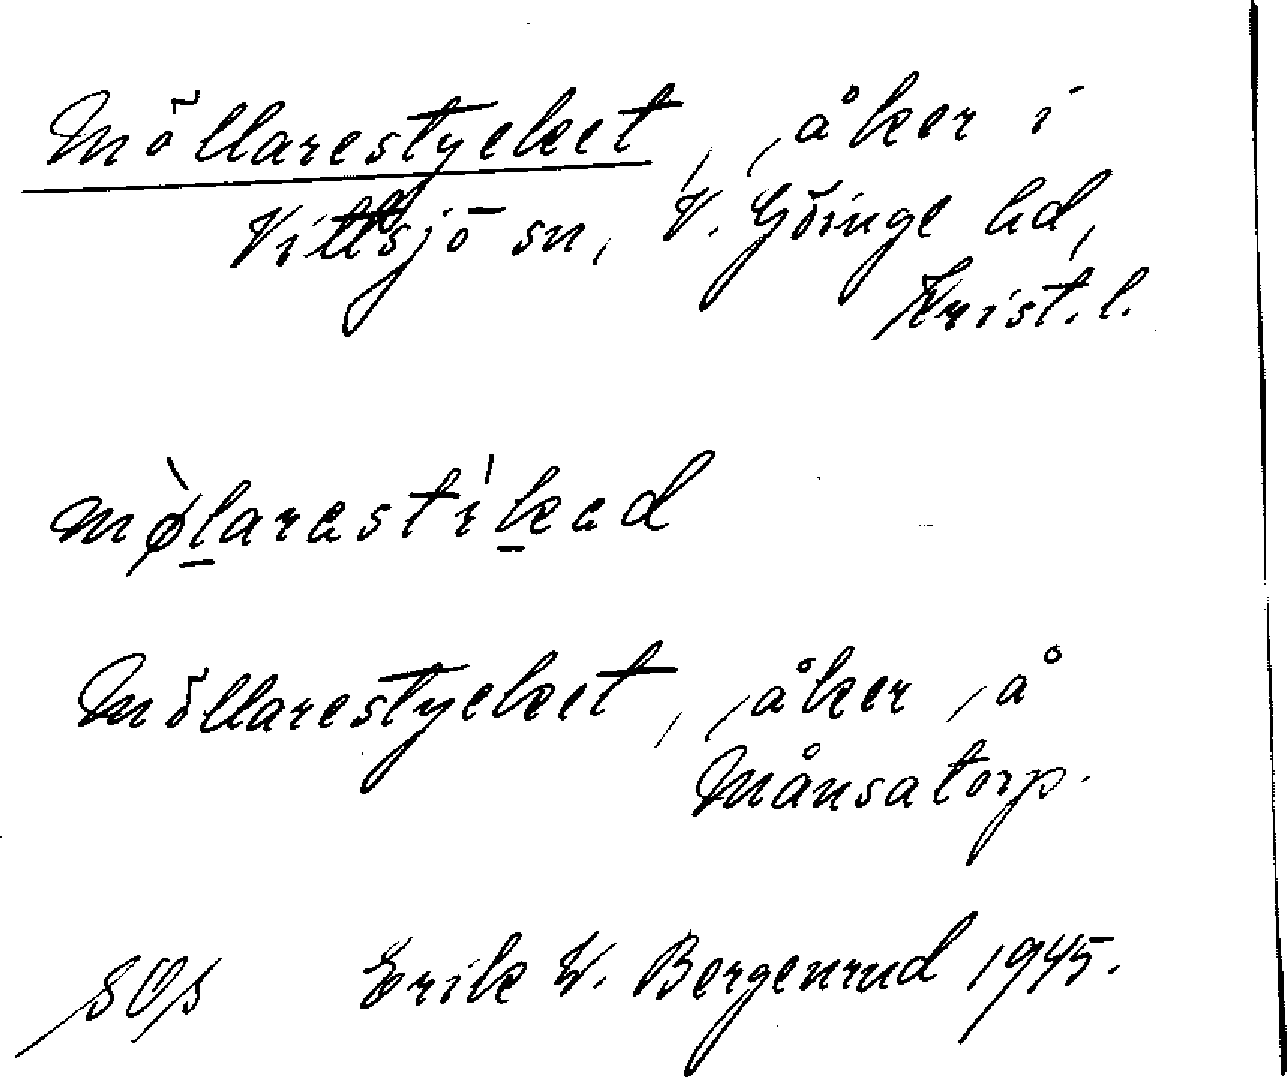 Möllarestycket, åker i
Vittsjö sn, V. Göinge hd,
Krist. l.
mø̀larastíkad
Möllarestycket, åker å
Månsatorp.
Erik W. Bergenrud 1945.